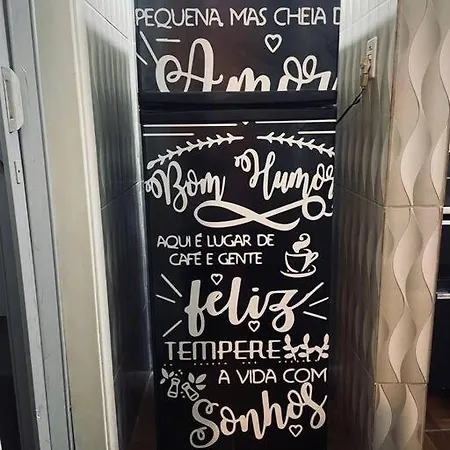 PEQUENA, MAS CHEIA D
Amor
Bom Humor
AQUI É LUGAR DE
CAFÉ E GENTE
feliz
TEMPERE
A VIDA COM
Sonhos